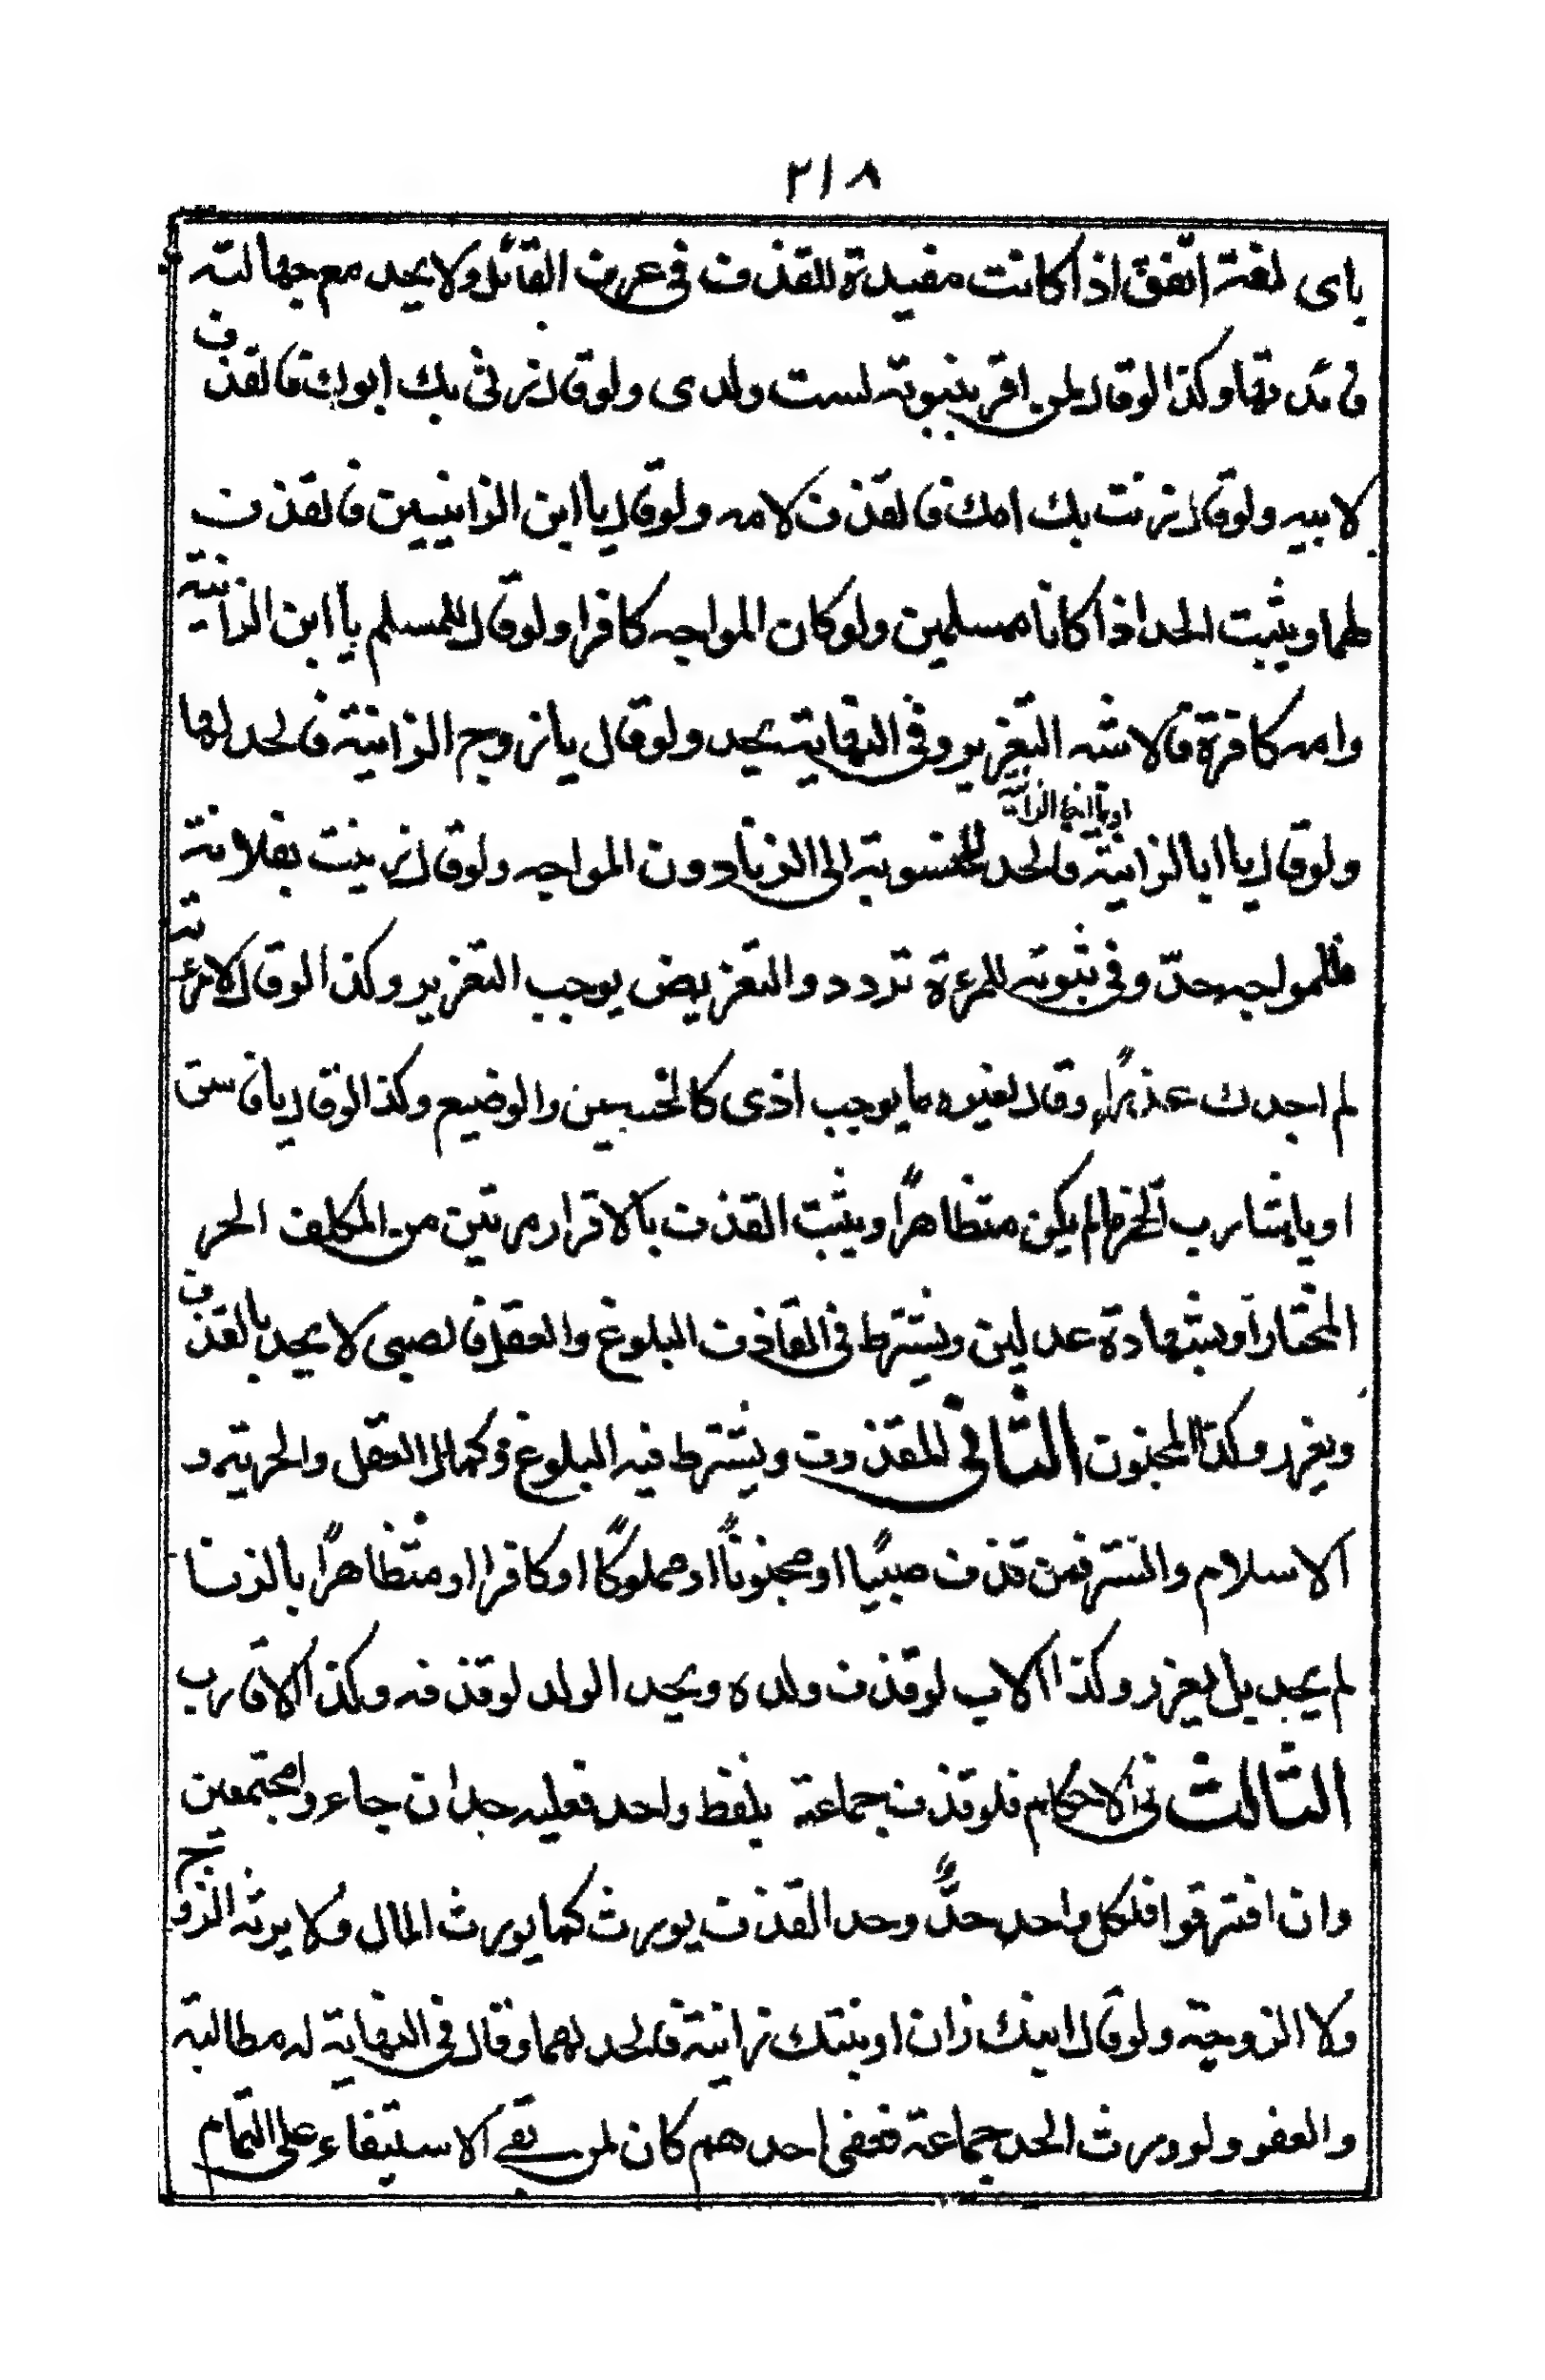 ٢١٨
باى لغة اتفق اذا كانت مفيدة للقذف فى عرف القائل ولا يحد مع جهالته
فائدتها وكذا لو قال لمن اقر ببنوته لست ولدى ولو قال زنى بك ابوك فالقذف
لابيه ولو قال زنت بك امك فالقذف لامه ولو قال يا ابن الزانيين فالقذف
لهما ويثبت الحد اذا كانا مسلمين ولو كان المواجه كافرا ولو قال للمسلم يا ابن الزانية
وامه كافرة فالاشبه التعزير وفى النهاية يحد ولو قال يا زوج الزانية فالحد لها
ولو قال يا ابا الزانية او يا اخا الزانية فالحد للمنسوبة الى الزنا دون المواجه ولو قال زنيت بفلانة
فللمواجه حدّ وفى ثبوته للمرءة تردد والتعريض يوجب التعزير وكذا لو قال لامرءته
لم اجدك عذراء وقال لغيره ما يوجب اذى كالخسيس والوضيع وكذا لو قال يا فاسق
او يا شارب الخمر ما لم يكن متظاهرًا ويثبت القذف بالاقرار مرتين من المكلف الحر
المختار او بشهادة عدلين ويشترط فى القاذف البلوغ والعقل فالصبى لا يحد بالقذف
ويعزر وكذا المجنون الثانى المقذوف ويشترط فيه البلوغ وكمال العقل والحرية و
الاسلام والستر فمن قذف صبيًا او مجنونًا او مملوكًا او كافرا او متظاهرًا بالزنا
لم يحد بل يعزر وكذا الاب لو قذف ولده ويحد الولد لو قذفه وكذا الاقارب
الثالث فى الاحكام فلو قذف جماعة بلفظ واحد فعليه حد ان جاءوا مجتمعين
وان افترقوا فلكل واحد حدٌّ وحد القذف يورث كما يورث المال ولا يرثه الزوج
ولا الزوجة ولو قال ابنك زان او بنتك زانية فالحد لهما وقال فى النهاية له مطالبة
والعفو ولو ورث الحد جماعة فعفى احدهم كان لمن بقى الاستيفاء على التمام